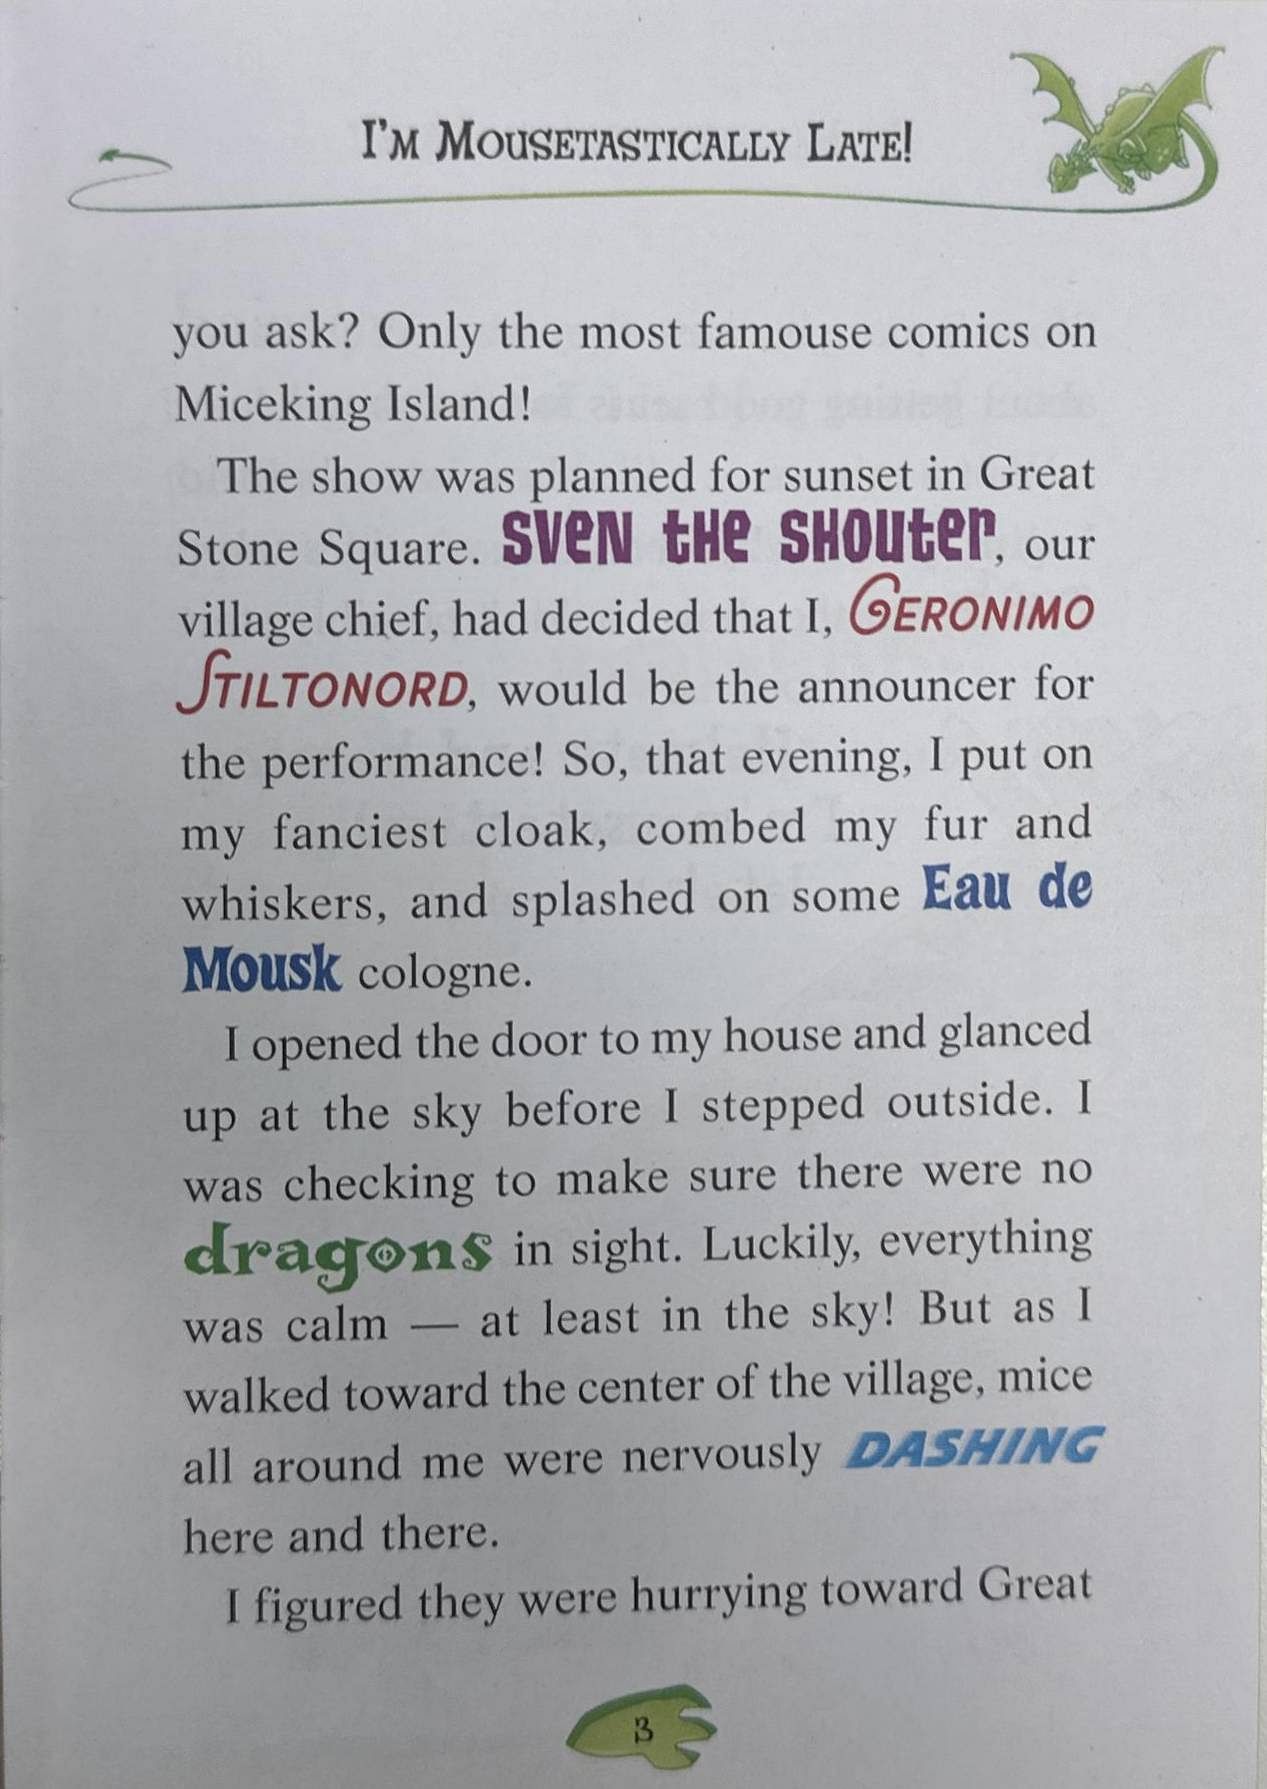 I'M MOUSETASTICALLY LATE!
you ask? Only the most famouse comics on
Miceking Island!
The show was planned for sunset in Great
Stone Square. SVEN THE SHOUTER, our
village chief, had decided that I, GERONIMO
STILTONORD, would be the announcer for
the performance! So, that evening, I put on
my fanciest cloak, combed my fur and
whiskers, and splashed on some Eau de
Mousk cologne.
I opened the door to my house and glanced
up at the sky before I stepped outside. I
was checking to make sure there were no
dragons in sight. Luckily, everything
was calm — at least in the sky! But as I
walked toward the center of the village, mice
all around me were nervously DASHING
here and there.
I figured they were hurrying toward Great
3